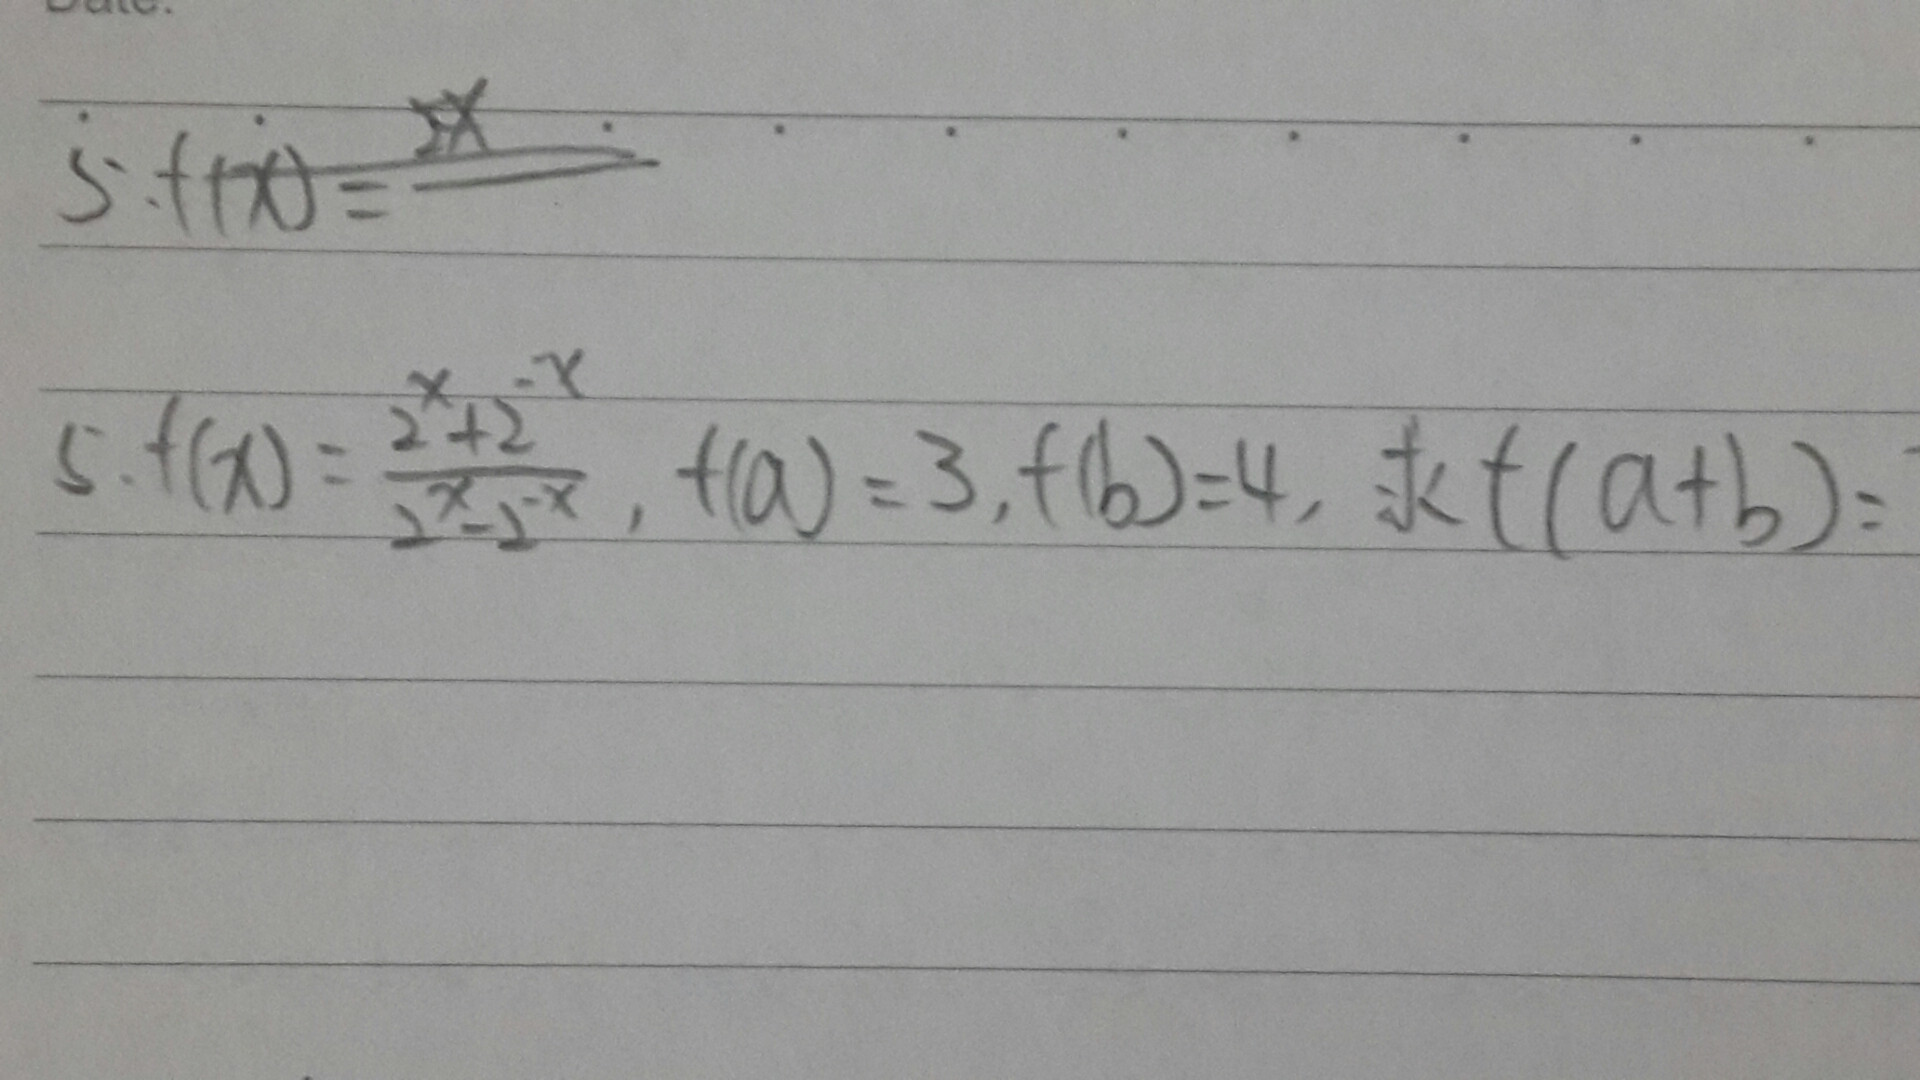 Date:
5. f(x) = 2^x
5. f(x) = \frac{2^x+2^{-x}}{2^x-2^{-x}}, f(a) = 3, f(b) = 4, 求 f(a+b) =